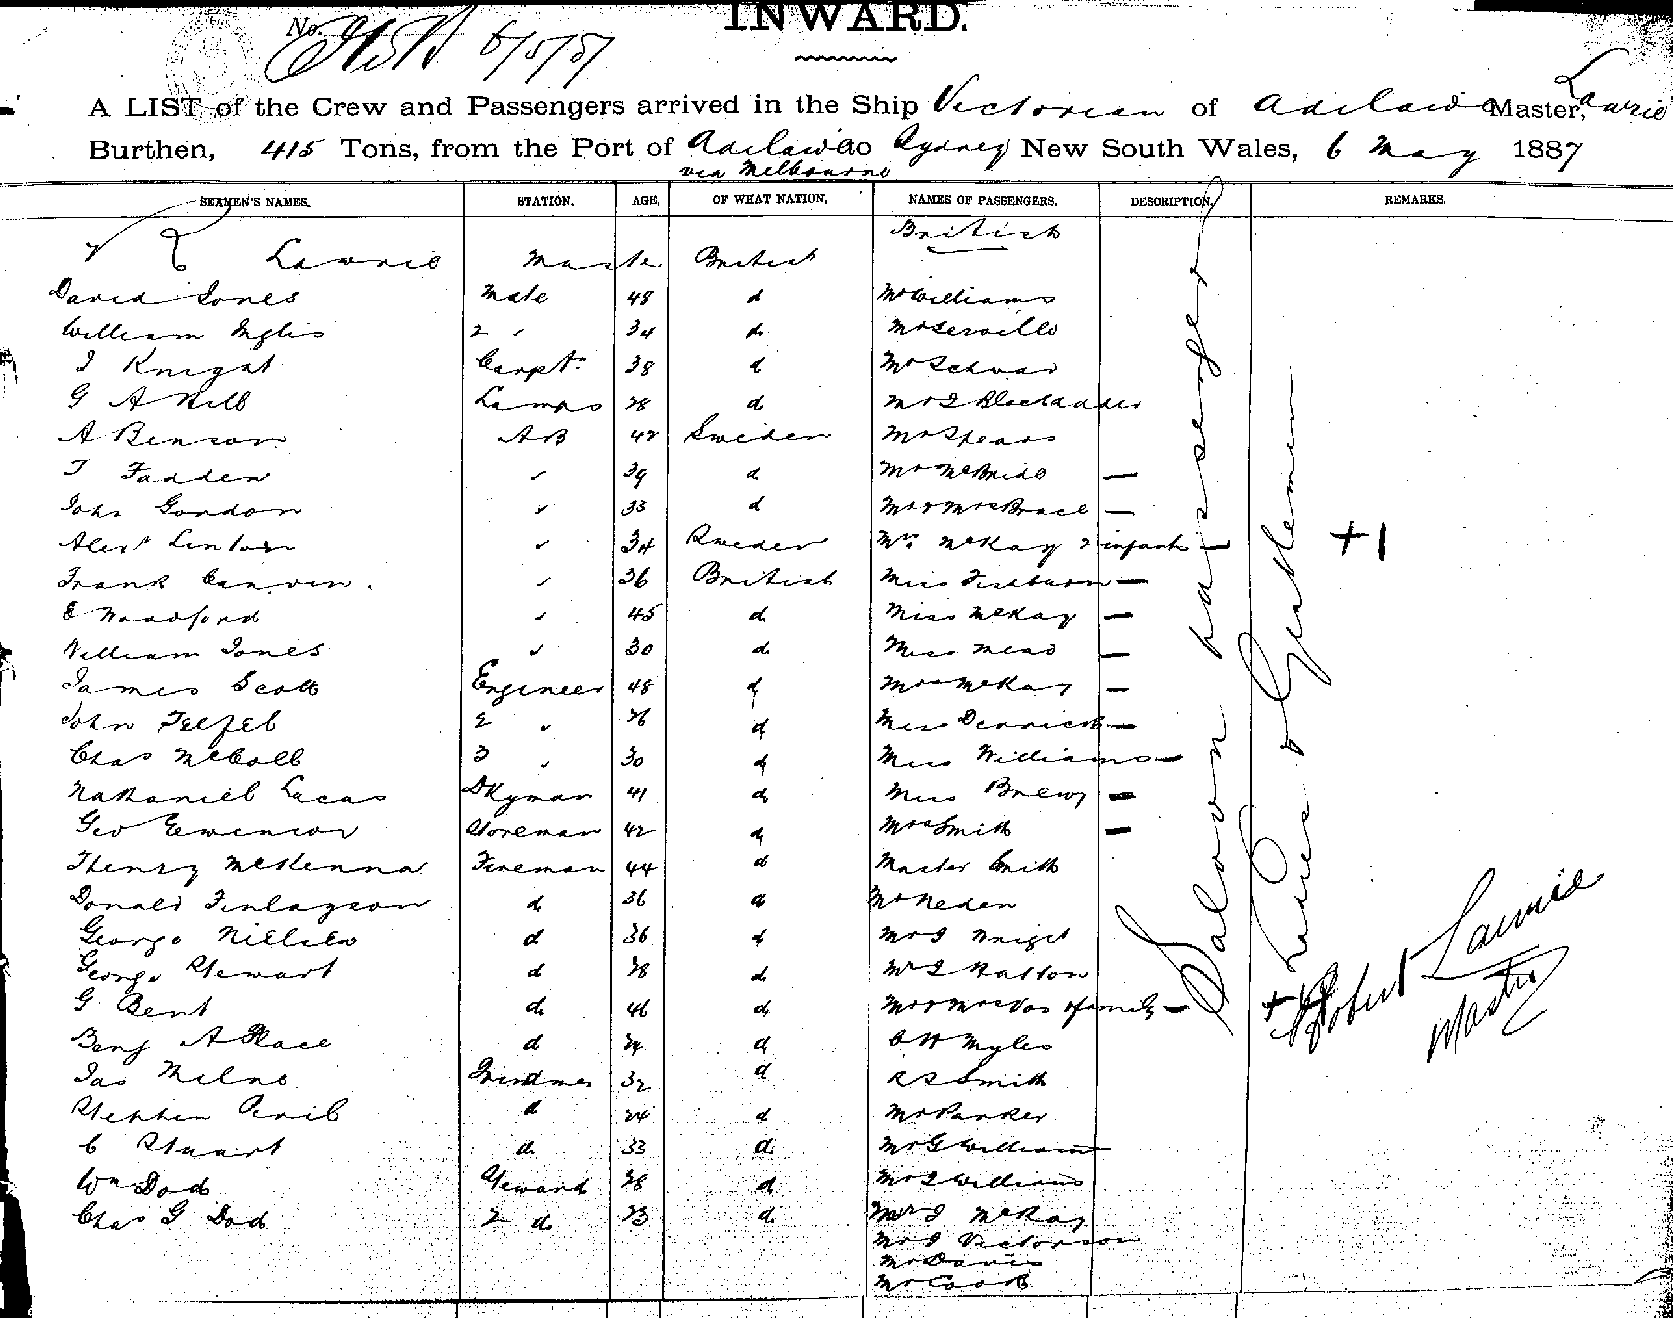 INWARD.
No. 6/5/87
A LIST of the Crew and Passengers arrived in the Ship Victorian of Adelaide Master, Lawrie
Burthen, 415 Tons, from the Port of Adelaide to Sydney New South Wales, 6 May 1887
via Melbourne
SEAMEN'S NAMES. STATION. AGE. OF WHAT NATION. NAMES OF PASSENGERS. DESCRIPTION. REMARKS.
British
Lawrie Master British
David Jones Mate 48 d Mr Williams
William Inglis 2 " 34 d
J Knight Carptr 38 d Mr Schwar
G A Hill Lamps 28 d
A Benson AB 42 Sweden Mr Spears
T Fadden " 39 d Mr McBride —
John Gordon " 33 d Mr & Mrs Brace —
Alexr Linton " 34 Sweden Mrs McKay 2 infants —
Frank " 36 British Miss Fishburn —
E Woodford " 45 d Miss McKay —
William Jones " 30 d Miss Mead —
James Scott Engineer 48 d Mrs McKay —
John Telfel 2 " 26 d Miss Derrick —
Chas McColl 3 " 30 d Miss Williams —
Nathaniel Lucas Dkyman 41 d Miss Brewy —
Geo Ewenson Storeman 42 d Mrs Smith —
Henry McKenna Fireman 44 d Master Smith
Donald Finlayson d 36 d Mr Neden
George Nielsen d 36 d Mr J Wright
George Stewart d 28 d Mr J Hatton
G Bent d 46 d Mr & Mrs Vos & family —
Benj A Place d 24 d C H Myles
Jas Milne Trimmer 32 d R S Smith
Stephen d 24 d Mr Parker
C Stuart d 33 d Mr G Williams
Wm Dod Steward 28 d Mr J Williams
Chas G Dod 2 d 23 d Mr J McKay
Mr J Victorson
Mr Davis
Mr Cook
Saloon passengers
Ladies & Gentlemen
+1
Robert Lawrie
Master